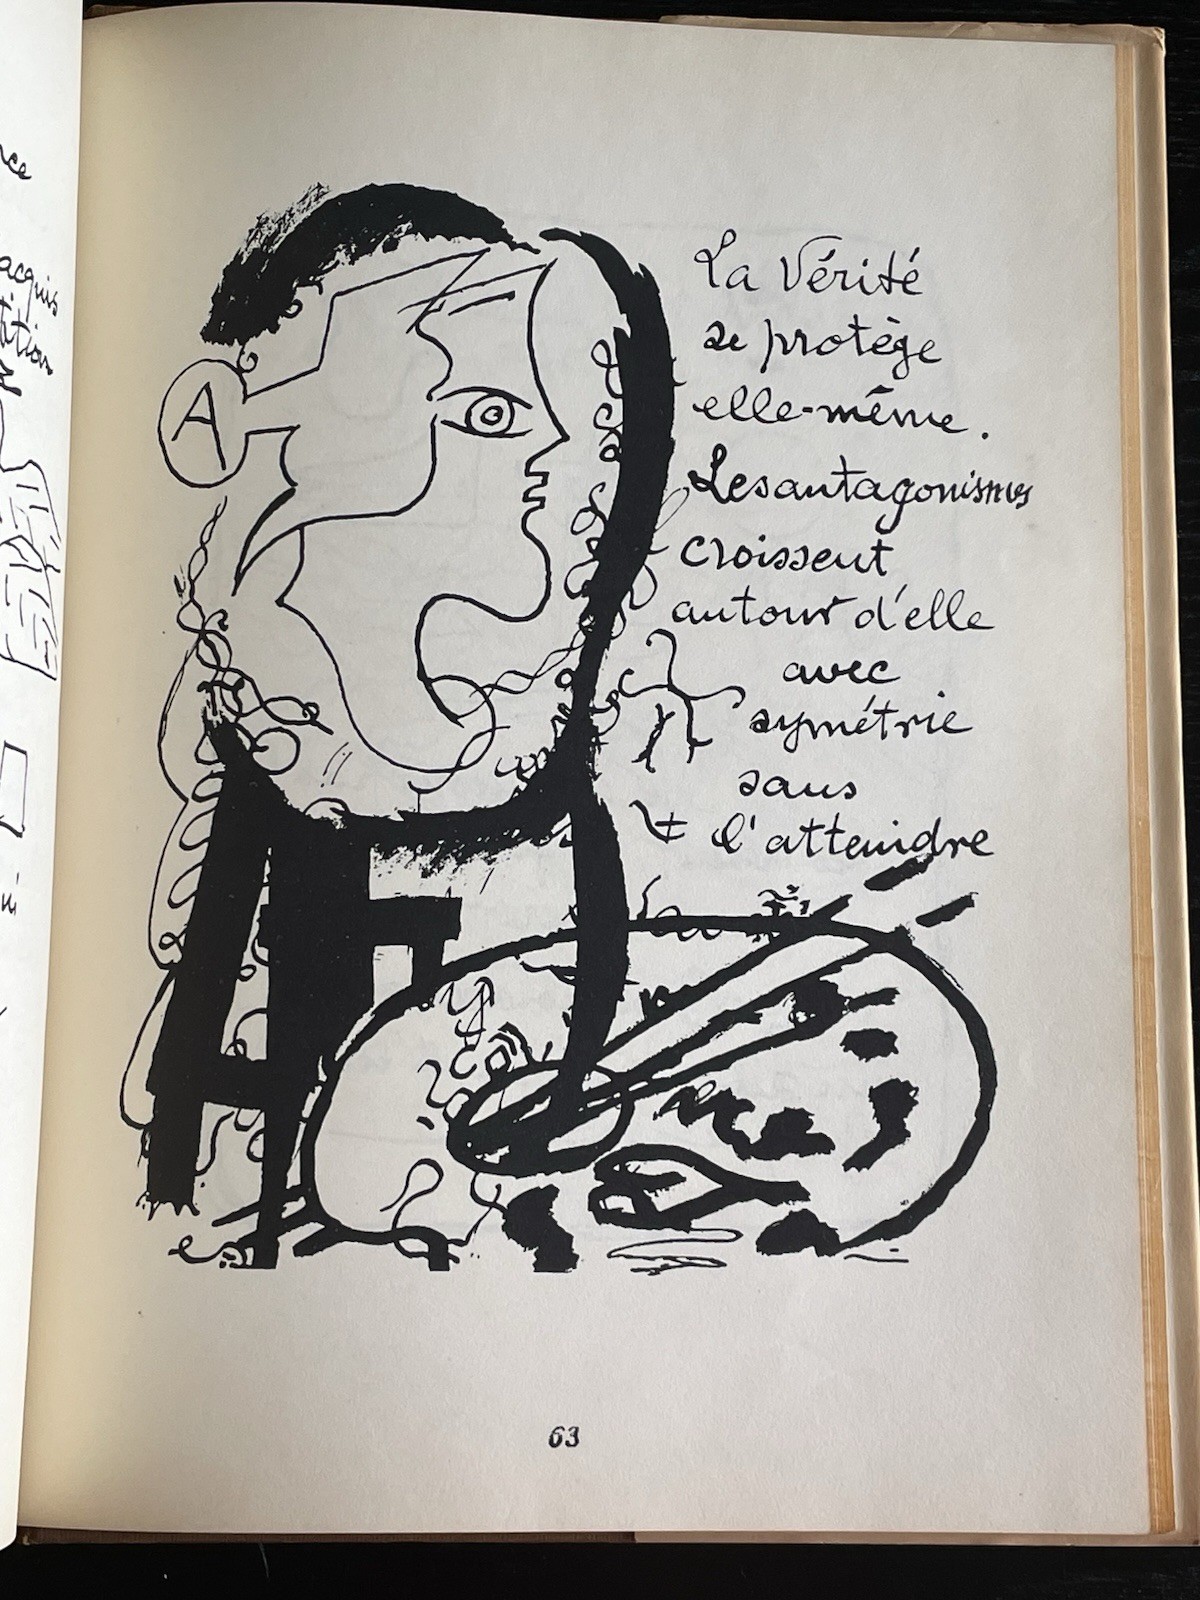 acquis
A
La Vérité
se protège
elle-même.
Les antagonismes
croissent
autour d'elle
avec
symétrie
sans
l'atteindre
63